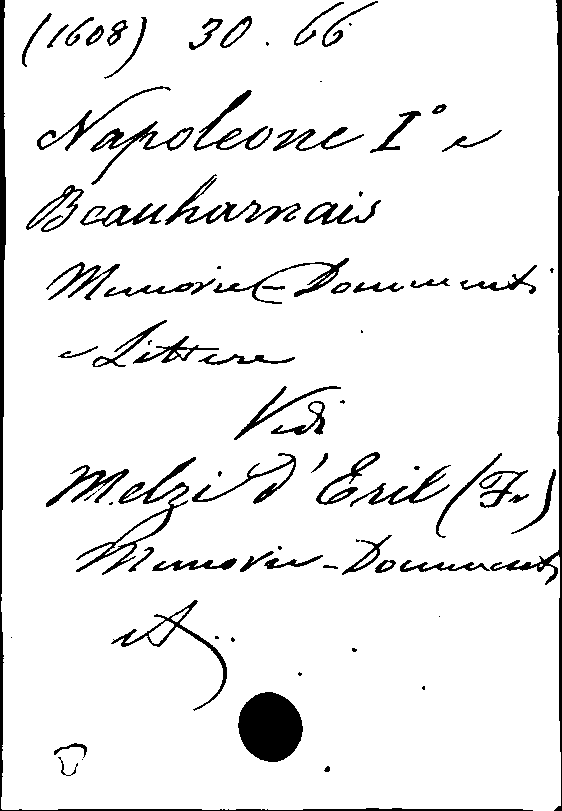 (1608) 30. 66
Napoleone I° e
Beauharnais
Memorie - Documenti
e Lettere
Vedi
Melzi d'Eril (Fr)
Memorie - Documenti